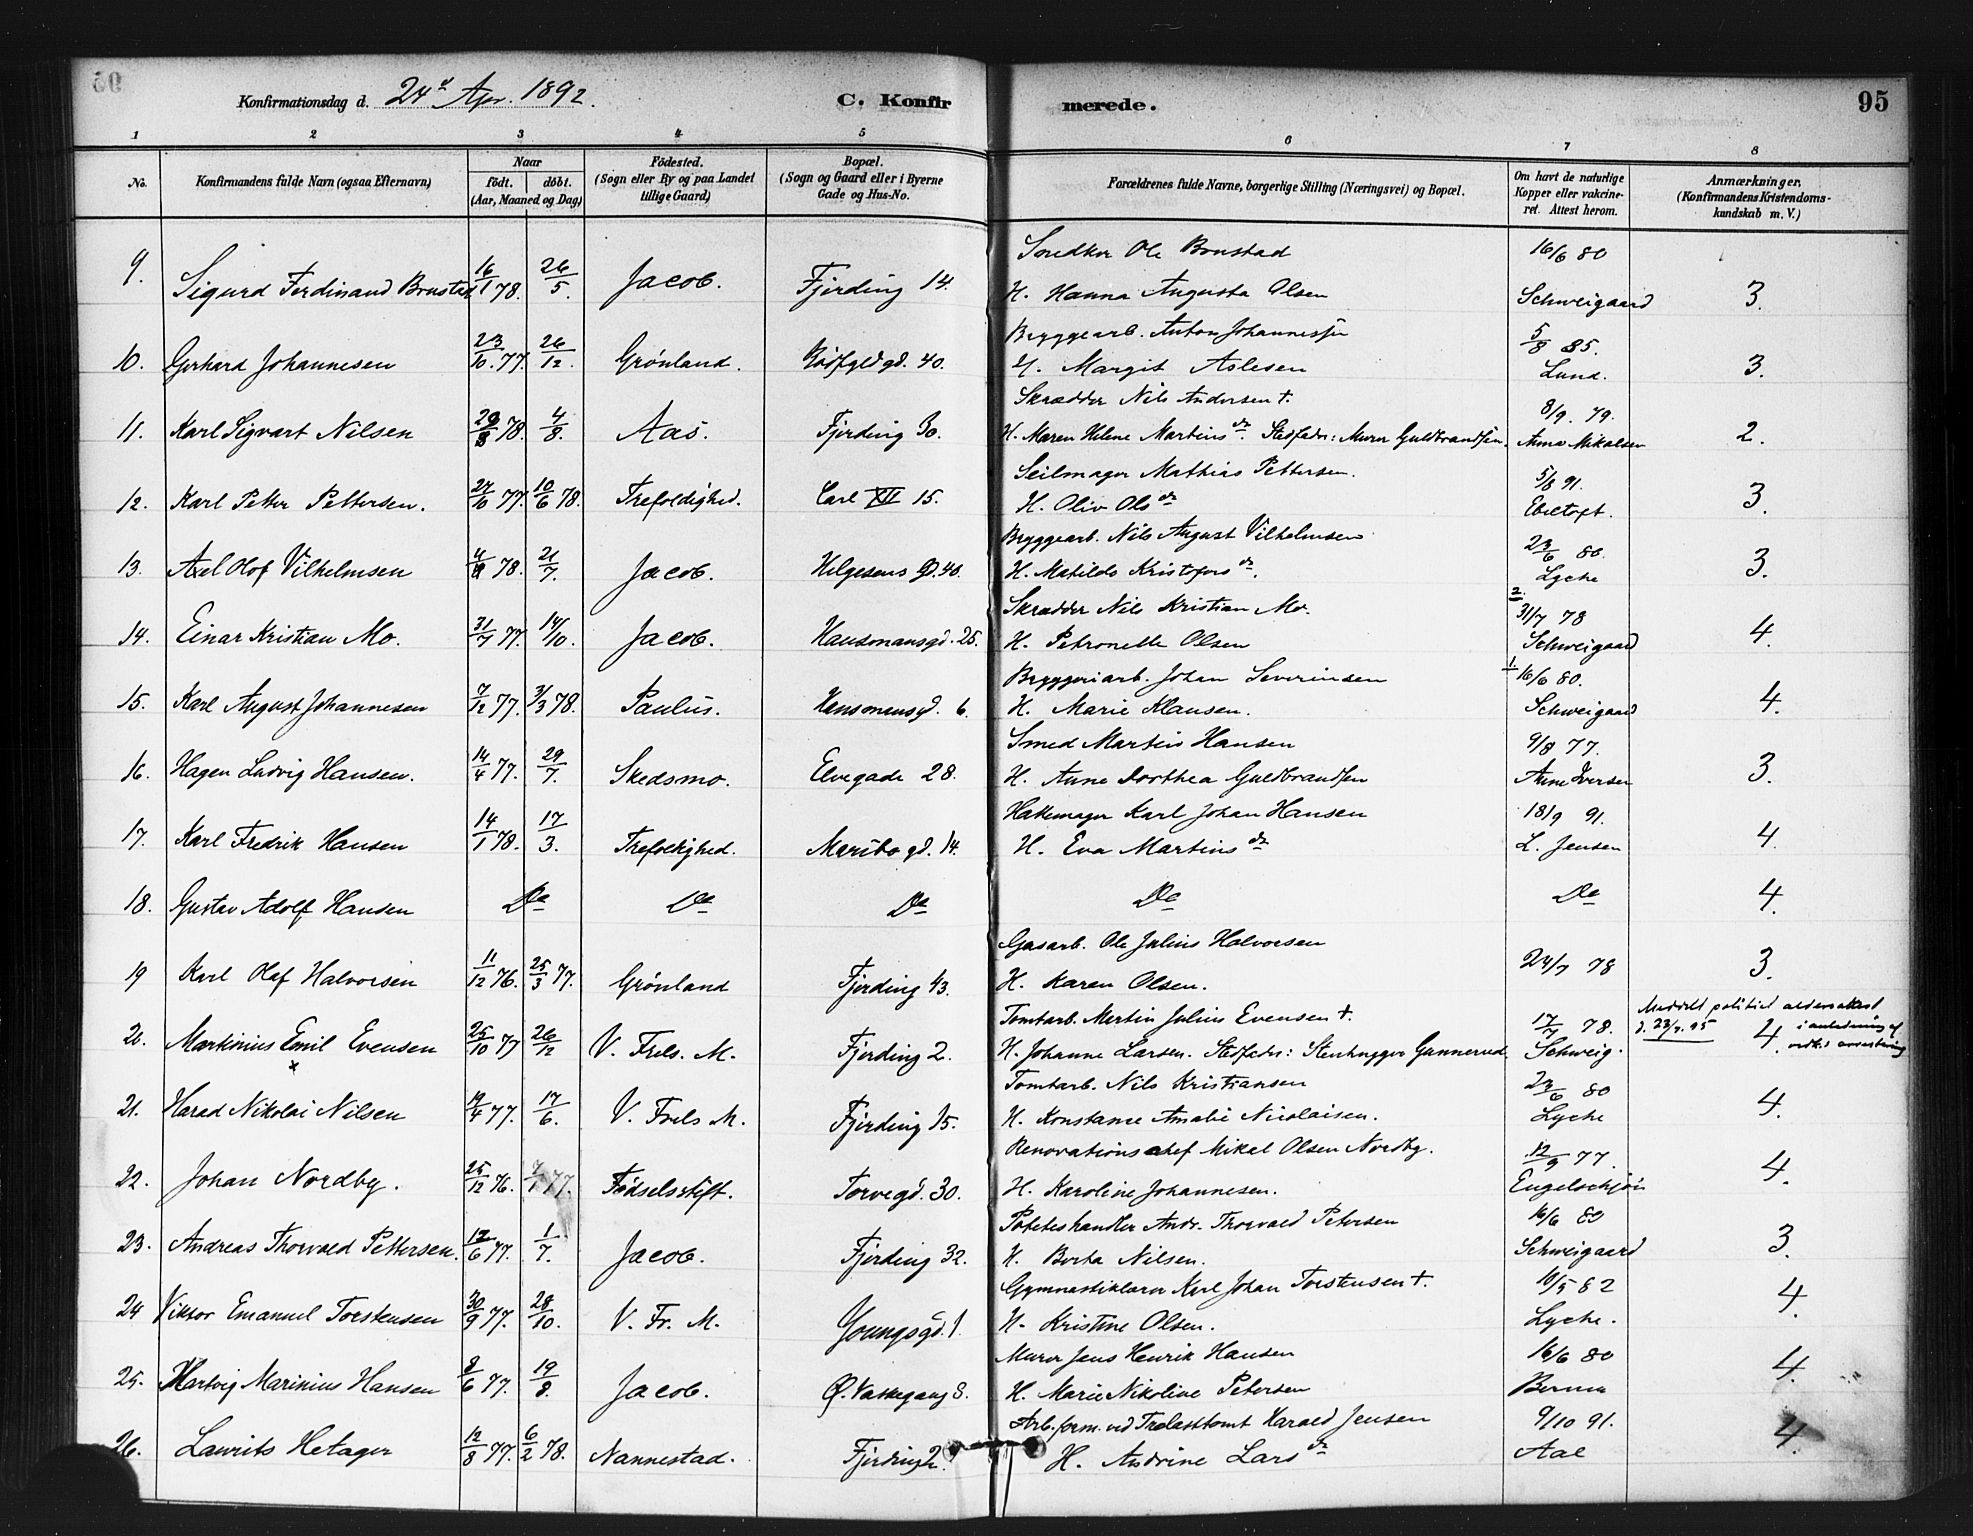 Konfirmationsdag d. 24de Apr. 1892. C. Konfirmerede. 95
1 2 3 4 5 6 7 8
No. Konfirmandens fulde Navn (ogsaa Efternavn) Naar födt. döbt. (Aar, Maaned og Dag) Födested. (Sogn eller By og paa Landet tillige Gaard) Bopæl. (Sogn og Gaard eller i Byerne Gade og Hus-No. Forældrenes fulde Navne, borgerlige Stilling (Næringsvei) og Bopæl. Om havt de naturlige Kopper eller vakcineret. Attest herom. Anmærkninger. (Konfirmandens Kristendomskundskab m. V.)
Snedker Ole Brustad 16/6 80
9. Sigurd Ferdinand Brustad 16/1 78. 26/5. Jacob. Fjerding 14. H. Hanna Augusta Olsen Schweigaard 3.
Bryggearb. Anton Johannessen 5/8 85.
10. Gerhard Johannesen 23/10. 77. 26/12. Grönland. 40. H. Margit Aslesen Lund. 3.
Skrædder Nils Andersen †. 8/9. 79.
11. Karl Sigvart Nilsen 78. 4/8. Aas. Fjerding 30. H. Maren Helene Martinsdr. Stedfader: Murer Guldbrandsen. Anna Mikalsen 2.
Seilmager Mathias Pettersen. 5/8 91.
12. Karl Petter Pettersen. 27/10 77. 10/6 78. Trefoldighed. Carl XII 15. H. Oliv Olsdr Ebeltoft. 3.
Bryggearb. Nils August Vilhelmsen 23/6 80.
13. Axel Olof Vilhelmsen 78. 21/7. Jacob. Helgesens Gd. 40. H. Matilde Kristofersdr. Lyche 3.
Skrædder Nils Kristian Mo. 2. 31/7 78
14. Einar Kristian Mo. 31/7 77. 14/10. Jacob. Hausmansgd. 25. H. Petronelle Olsen Schweigaard 4.
Bryggeriarb. Johan Severinsen 1. 16/6 80.
15. Karl August Johannesen 7/12 77. 3/3 78. Paulus. Hausmansgd. 6. H. Marie Klausen. Schweigaard 4.
Smed Martin Hansen 9/8 77.
16. Hagen Ludvig Hansen. 14/4 77. 29/7. Skedsmo. Elvegade 28. H. Anne Dorthea Guldbrandsen Anne Iversen 3.
Hattemager Karl Johan Hansen 18/9 91.
17. Karl Fredrik Hansen 14/1 78. 17/3. Trefoldighed. Maribogd. 14. H. Eva Martinsdr L. Jensen 4.
18. Gustav Adolf Hansen Do Do Do Do Do 4.
Gasarb. Ole Julius Halvorsen
19 Karl Olaf Halvorsen 11/12 76. 25/3 77. Grönland Fjerding 43. H. Karen Olsen. 24/7 78 3.
Tomtarb. Martin Julius Evensen †. 17/7 78. Meddelt politiet aldersattest
20. Martinius Emil Evensen 25/10 77 26/12 V. Frels. M. Fjerding 2. H. Johanne Larsen. Stedfader: Stenhugger Gunnerud Schweig. 4. d. 23/7. 95 i anledning af arrestering
Tomtarb. Nils Kristiansen 23/6 80
21. Harad Nikolai Nilsen 77. 17/6. V. Frels M. Fjerding 15. H. Konstance Amalie Nicolaisen. Lyche 4.
Renovationschef Mikal Olsen Nordby. 12/9 77.
22. Johan Nordby. 25/12 76. 77. Fødselsstift. Torvegd. 30. H. Karoline Johannesen. Engelschiön 4.
Poteteshandler Andr. Thorvald Petersen 16/6 80
23. Andreas Thorvald Pettersen. 6 77. 1/7. Jacob. Fjerding 32. H. Berta Nilsen. Schweigaard 3.
Gymnastiklærer Karl Johan Torstensen †. 10/5 82
24 Viktor Emanuel Torstensen 30/9 77. 28/10. V. Fr. M. Youngsgd. 1. H. Kristine Olsen. Lyche. 4.
Murer Jens Henrik Hansen 16/6 80
25. Hartvig Marinius Hansen 8/6 77. 19/8. Jacob. Ø. Vaskegang 8. H. Marie Nikoline Petersen 4.
Arb.form. ved Trælasttomt Harald Jensen 9/10 91.
26. Laurits Hetager 12/8 77. 6/2 78. Nannestad. Fjerding 2. H. Andrine Larsdr Aal 4.